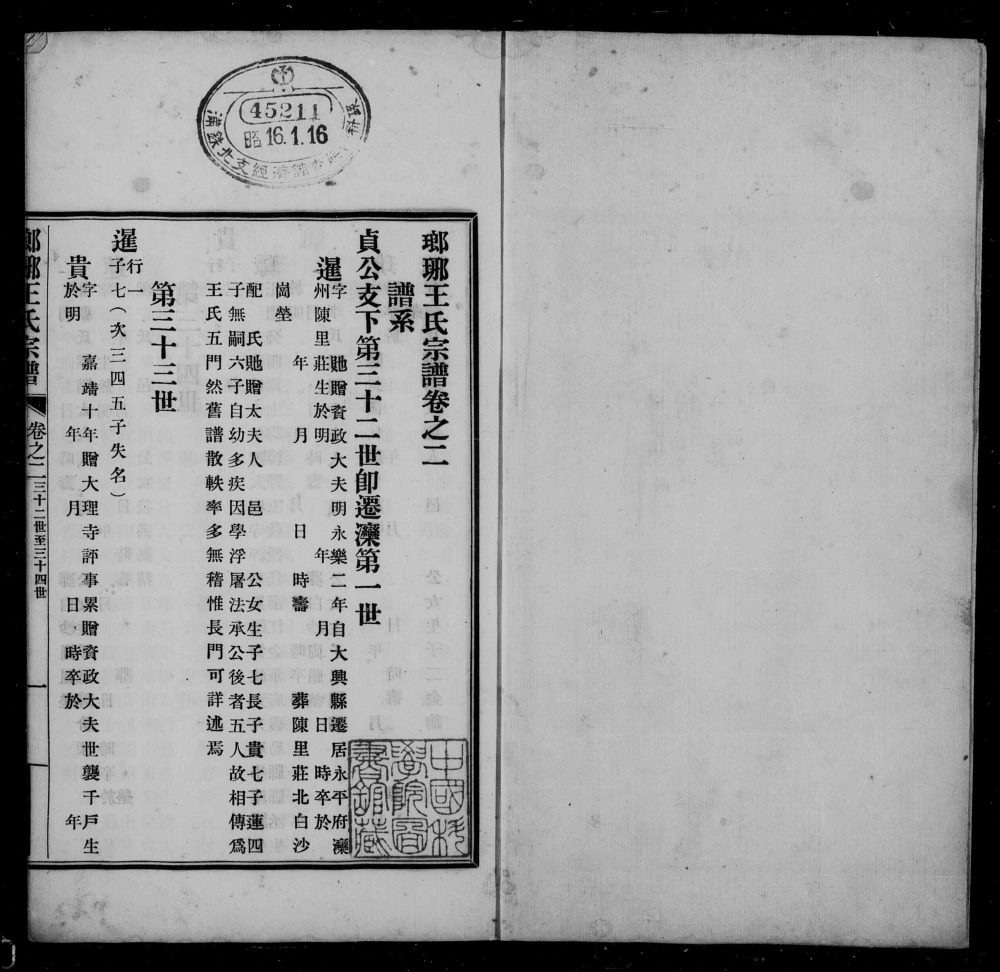 45211
昭 16.1.16
瑯琊王氏宗譜卷之二
譜系
貞公支下第三十二世卽遷灤第一世
暹
字 貤贈資政大夫明永樂二年自大興縣遷居永平府灤
州陳里莊生於明 年 月 日 時卒於
年 月 日 時壽 葬陳里莊北白沙
崗塋
配 氏貤贈太夫人邑 公女生子七長子貴七子蓮四
子無嗣六子自幼多疾因學浮屠法承公後者五人故相傳爲
王氏五門然舊譜散軼率多無稽惟長門可詳述焉
第三十三世
暹
行一
子七(次三四五子失名)
貴
字 嘉靖十年贈大理寺評事累贈資政大夫世襲千戶生
於明 年 月 日 時卒於 年
瑯琊王氏宗譜 卷之二 三十二世至三十四世 一
中國科
學院圖
書館藏